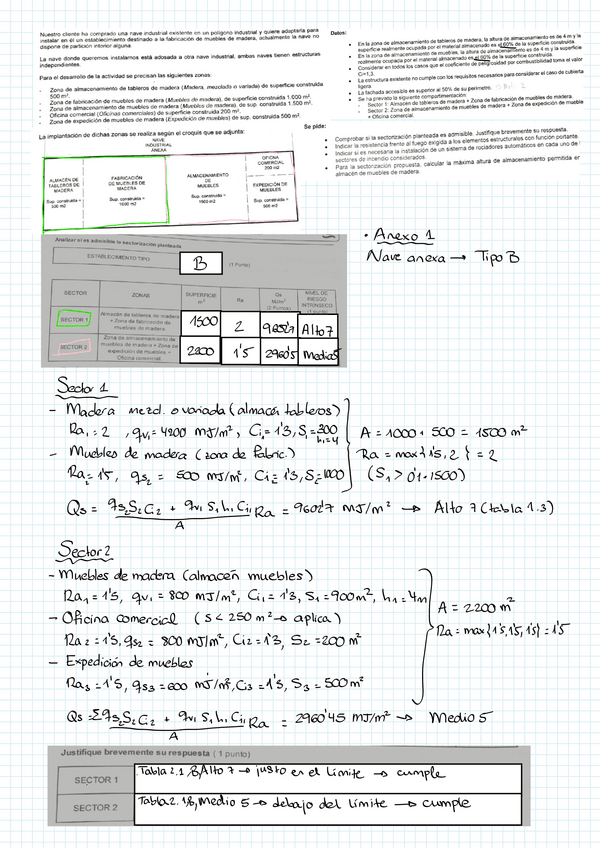 Nuestro cliente ha comprado una nave industrial existente en un polígono industrial y quiere adaptarla para
instalar en él un establecimiento destinado a la fabricación de muebles de madera, actualmente la nave no
dispone de partición interior alguna.
La nave donde queremos instalarnos está adosada a otra nave industrial, ambas naves tienen estructuras
independientes.
Para el desarrollo de la actividad se precisan las siguientes zonas:
- Zona de almacenamiento de tableros de madera (Madera, mezclada o variada) de superficie construida
500 m2.
- Zona de fabricación de muebles de madera (Muebles de madera), de superficie construida 1.000 m2.
- Zona de almacenamiento de muebles de madera (Muebles de madera), de superficie construida 1.500 m2.
- Oficina comercial (Oficinas comerciales) de superficie construida 200 m2.
- Zona de expedición de muebles de madera (Expedición de muebles) de sup. construida 500 m2.
La implantación de dichas zonas se realiza según el croquis que se adjunta:
Datos:
• En la zona de almacenamiento de tableros de madera, la altura de almacenamiento es de 4 m y la
superficie realmente ocupada por el material almacenado es el 60% de la superficie construida.
• En la zona de almacenamiento de muebles, la altura de almacenamiento es de 4 m y la superficie
realmente ocupada por el material almacenado es el 60% de la superficie construida.
• Considerar en todos los casos que el coeficiente de peligrosidad por combustibilidad toma el valor
Ci=1,3.
• La estructura existente no cumple con los requisitos necesarios para considerar el caso de cubierta
ligera.
• La fachada accesible es superior al 50% de su perímetro.
• Se ha previsto la siguiente compartimentación:
- Sector 1: Almacén de tableros de madera + Zona de fabricación de muebles de madera.
- Sector 2: Zona de almacenamiento de muebles de madera + Zona de expedición de mueble
+ Oficina comercial.
Se pide:
• Comprobar si la sectorización planteada es admisible. Justifique brevemente su respuesta.
• Indicar la resistencia frente al fuego exigida a los elementos estructurales con función portante.
• Indicar si es necesaria la instalación de un sistema de rociadores automáticos en cada uno de l
sectores de incendio considerados.
• Para la sectorización propuesta, calcular la máxima altura de almacenamiento permitida er
almacén de muebles de madera.
NAVE
INDUSTRIAL
ANEXA
ALMACEN DE
TABLEROS DE
MADERA
Sup. construida =
500 m2
FABRICACIÓN
DE MUEBLES DE
MADERA
Sup. construida =
1000 m2
ALMACENAMIENTO
DE
MUEBLES
Sup. construida =
1500 m2
OFICINA
COMERCIAL
200 m2
EXPEDICIÓN DE
MUEBLES
Sup. construida =
500 m2
• Anexo 1
Nave anexa → Tipo B
Analizar si es admisible la sectorización planteada
ESTABLECIMIENTO TIPO B (1 Punto)
SECTOR ZONAS SUPERFICIE m2 Ra Qs MJ/m2 (2 Puntos) NIVEL DE RIESGO INTRÍNSECO (1 punto)
SECTOR 1 Almacén de tableros de madera + Zona de fabricación de muebles de madera 1500 2 9602'7 Alto 7
SECTOR 2 Zona de almacenamiento de muebles de madera + Zona de expedición de muebles + Oficina comercial 2200 1'5 2960'5 Medio 5
Sector 1
- Madera mezcl. o variada (almacén tableros)
Ra1 = 2 , qv1 = 4200 MJ/m2, Ci1 = 1'3, S1 = 300 h1=4
- Muebles de madera (zona de fabric.)
Ra2 = 1'5, qs2 = 500 MJ/m2, Ci = 1'3, S2 = 1000
A = 1000 + 500 = 1500 m2
Ra = max{1'5, 2} = 2
(S1 > 0'1·1500)
Qs = qs2 S2 Ci2 + qv1 S1 h1 Ci1 / A Ra = 9602'7 MJ/m2 → Alto 7 (tabla 1.3)
Sector 2
- Muebles de madera (almacén muebles)
Ra1 = 1'5, qv1 = 800 MJ/m2, Ci1 = 1'3, S1 = 900 m2, h1 = 4m
- Oficina comercial (S < 250 m2 → aplica)
Ra2 = 1'5, qs2 = 800 MJ/m2, Ci2 = 1'3, S2 = 200 m2
- Expedición de muebles
Ra3 = 1'5, qs3 = 600 MJ/m2, Ci3 = 1'3, S3 = 500 m2
A = 2200 m2
Ra = max{1'5, 1'5, 1'5} = 1'5
Qs = Σqs2 S2 Ci2 + qv1 S1 h1 Ci1 / A Ra = 2960'45 MJ/m2 → Medio 5
Justifique brevemente su respuesta (1 punto)
SECTOR 1 Tabla 2.1 B, Alto 7 → justo en el límite → cumple
SECTOR 2 Tabla 2.1 B, Medio 5 → debajo del límite → cumple